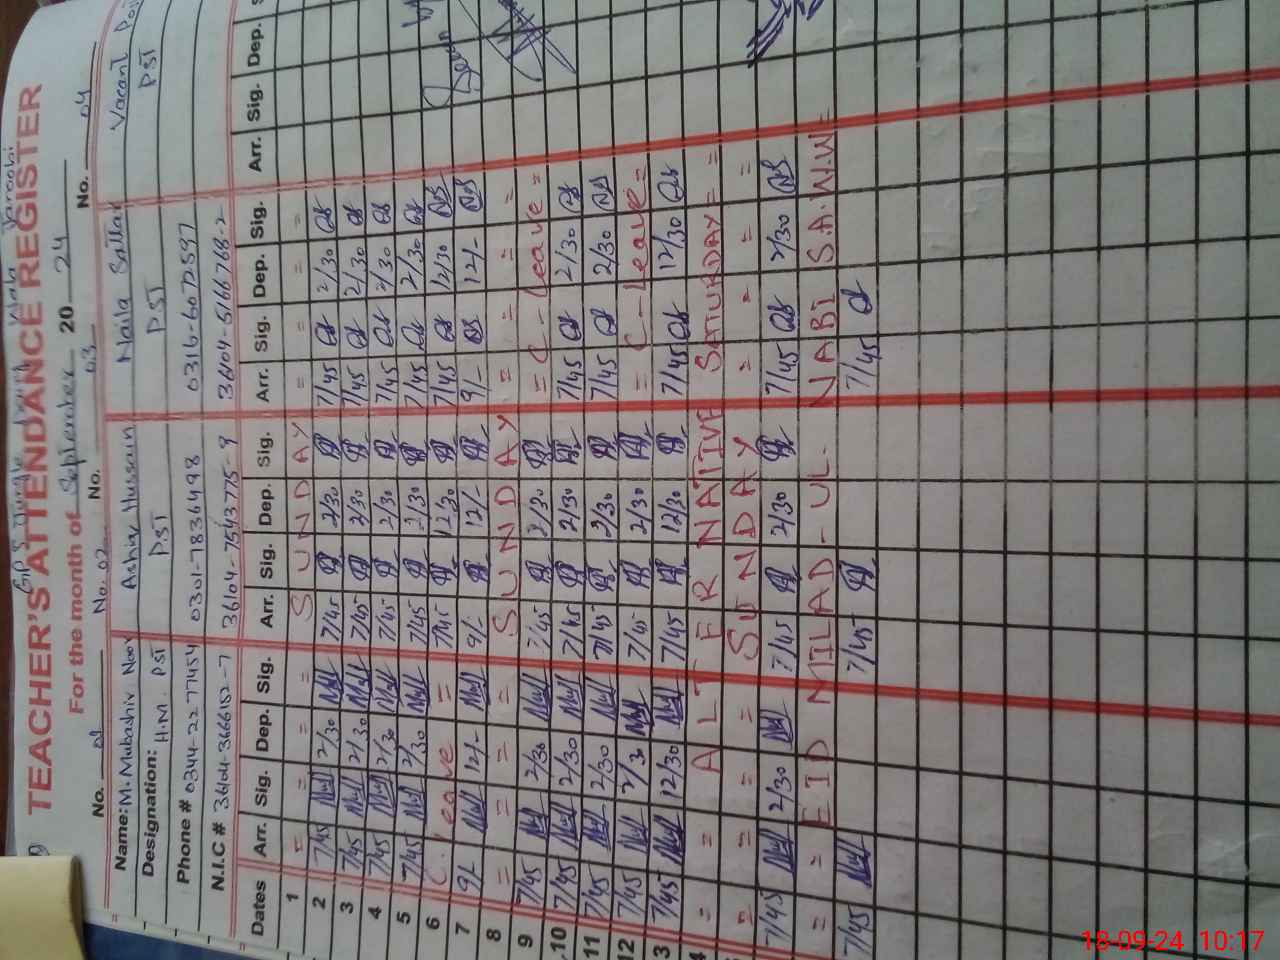 GPS Jungle
TEACHER'S ATTENDANCE REGISTER
For the month of September 2024
No. 01 No. 02 No. 03 No. 04
Name: M. Mubashir Noor Ashiq Hussain Naila Sattar Vacant
Designation: H.M. PST PST PST PST
Phone # 0344-2277454 0301-7836498 0316-6072597
N.I.C #
Dates Arr. Sig. Dep. Sig. Arr. Sig. Dep. Sig. Arr. Sig. Dep. Sig. Arr. Sig. Dep.
1 = = = = SUNDAY = = = =
2 7/45 2/30 7/45 2/30 7/45 2/30
3 7/45 2/30 7/45 2/30 7/45 2/30
4 7/45 2/30 7/45 2/30 7/45 2/30
5 7/45 2/30 7/45 2/30 7/45 2/30
6 C. Leave = 7/45 12/30 7/45 12/30
7 9/- 12/- 9/- 12/- 9/- 12/-
8 = = = = SUNDAY = = = =
9 7/45 2/30 7/45 2/30 = C - Leave =
10 7/45 2/30 7/45 2/30 7/45 2/30
11 7/45 2/30 7/45 2/30 7/45 2/30
12 7/45 2/30 7/45 2/30 = C - Leave =
3 7/45 12/30 7/45 12/30 7/45 12/30
4 = = ALTERNATIVE SATURDAY = =
= = = = SUNDAY = = = =
7/45 2/30 7/45 2/30 7/45 2/30
= = EID MILAD-UL-NABI S.A.W.W
7/45 7/45 7/45
18-09-24 10:17